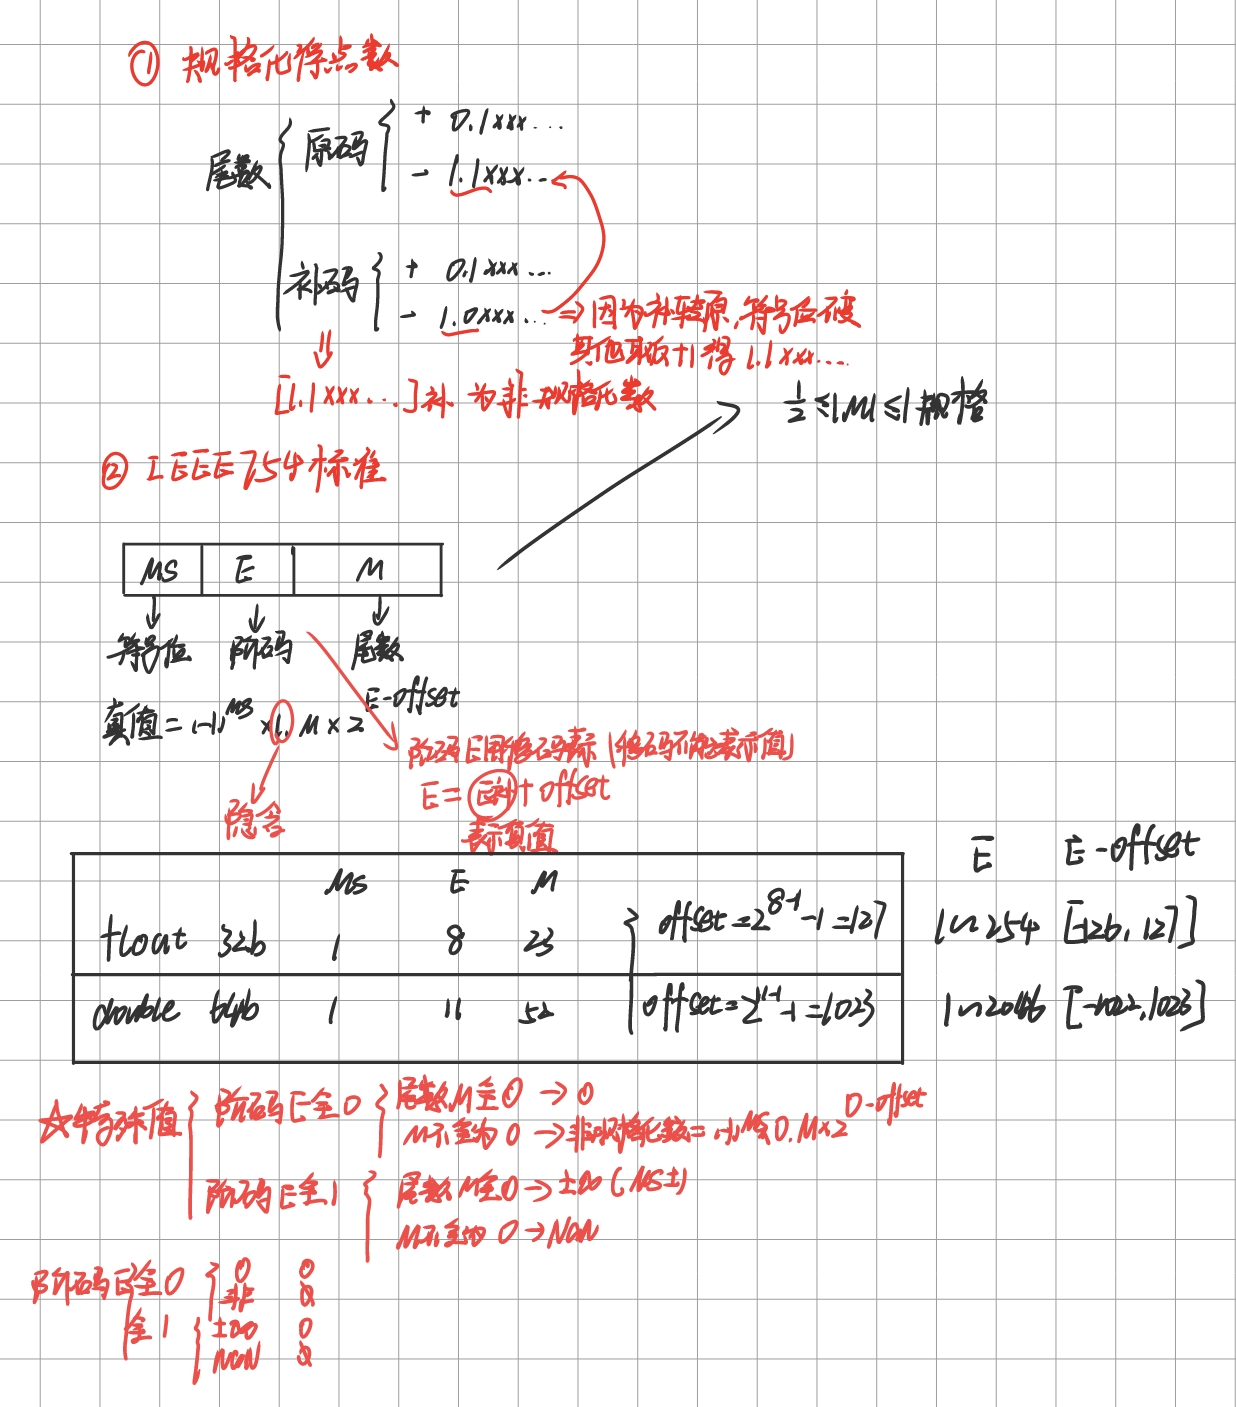 ① 规格化浮点数
尾数
原码
+ 0.1xxx...
- 1.1xxx...
补码
+ 0.1xxx...
- 1.0xxx... ⇒ 因为补转原,符号位不变
其他取反+1得 1.1xxx...
⇓
[1.1xxx...]补 为非规格化数
1/2 ≤|M|≤1 规格
② IEEE754标准
MS E M
符号位 阶码 尾数
真值 = (-1)^MS × 1.M × 2^E-offset
阶码E用移码表示 (移码不能表示值)
E = E补 + offset
隐含
表示真值
MS E M
E E-offset
float 32b 1 8 23 offset=2^8-1 -1=127 1~254 [-126,127]
double 64b 1 11 52 offset=2^11-1 -1=1023 1~2046 [-1022,1023]
☆特殊值
阶码E全0
尾数M全0 → 0
M不全为0 → 非规格化数 = (-1)^MS × 0.M × 2^0-offset
阶码E全1
尾数M全0 → ±∞ (MS±)
M不全为0 → NaN
阶码E全0
0 0
非
全1
±∞ 0
NaN